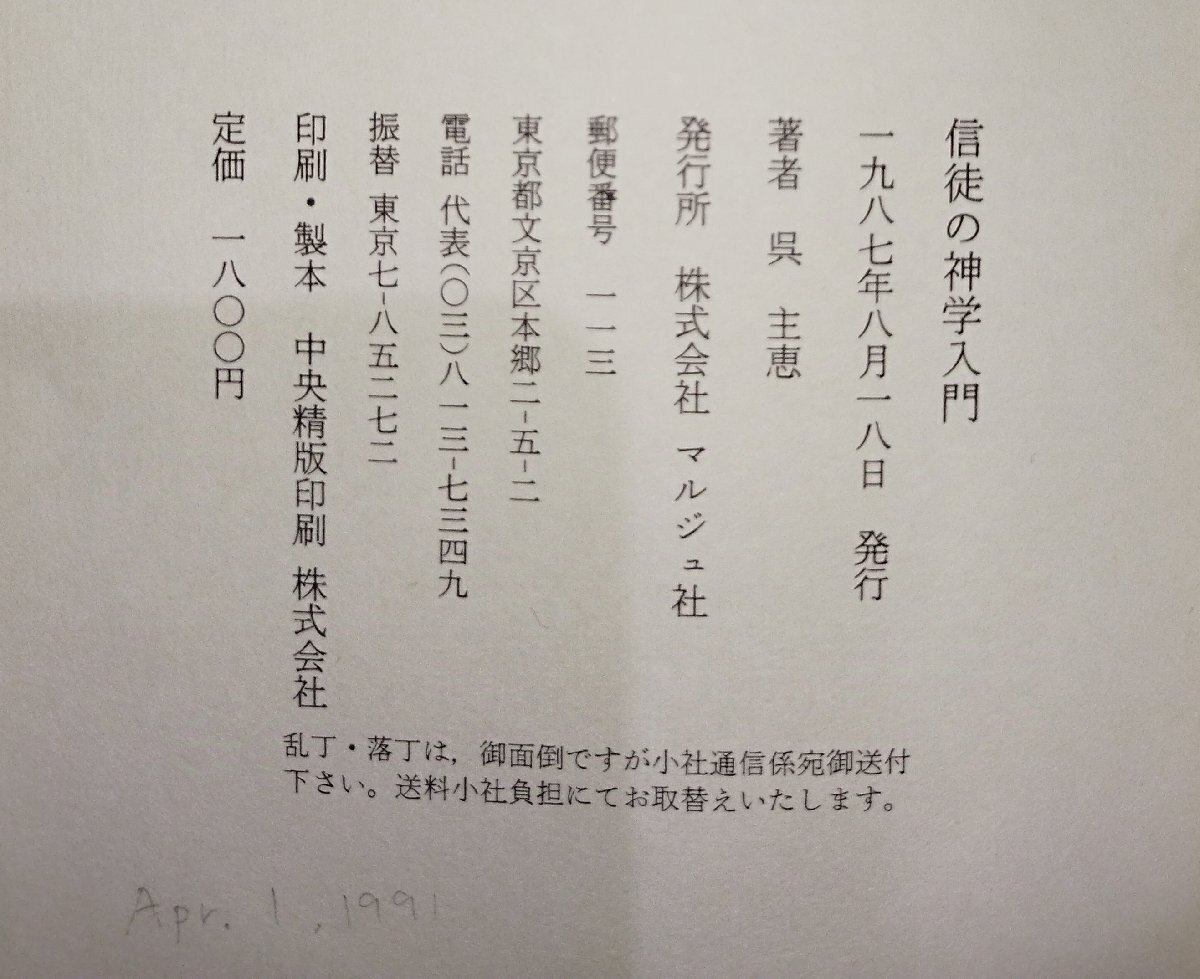 信徒の神学入門
一九八七年八月一八日 発行
著者 呉 主恵
発行所 株式会社 マルジュ社
郵便番号 一一三
東京都文京区本郷二-五-二
電話 代表(〇三)八一三-七三四九
振替 東京七-八五二七二
印刷・製本 中央精版印刷 株式会社
定価 一八〇〇円
乱丁・落丁は,御面倒ですが小社通信係宛御送付
下さい。送料小社負担にてお取替えいたします。
Apr. 1, 1991